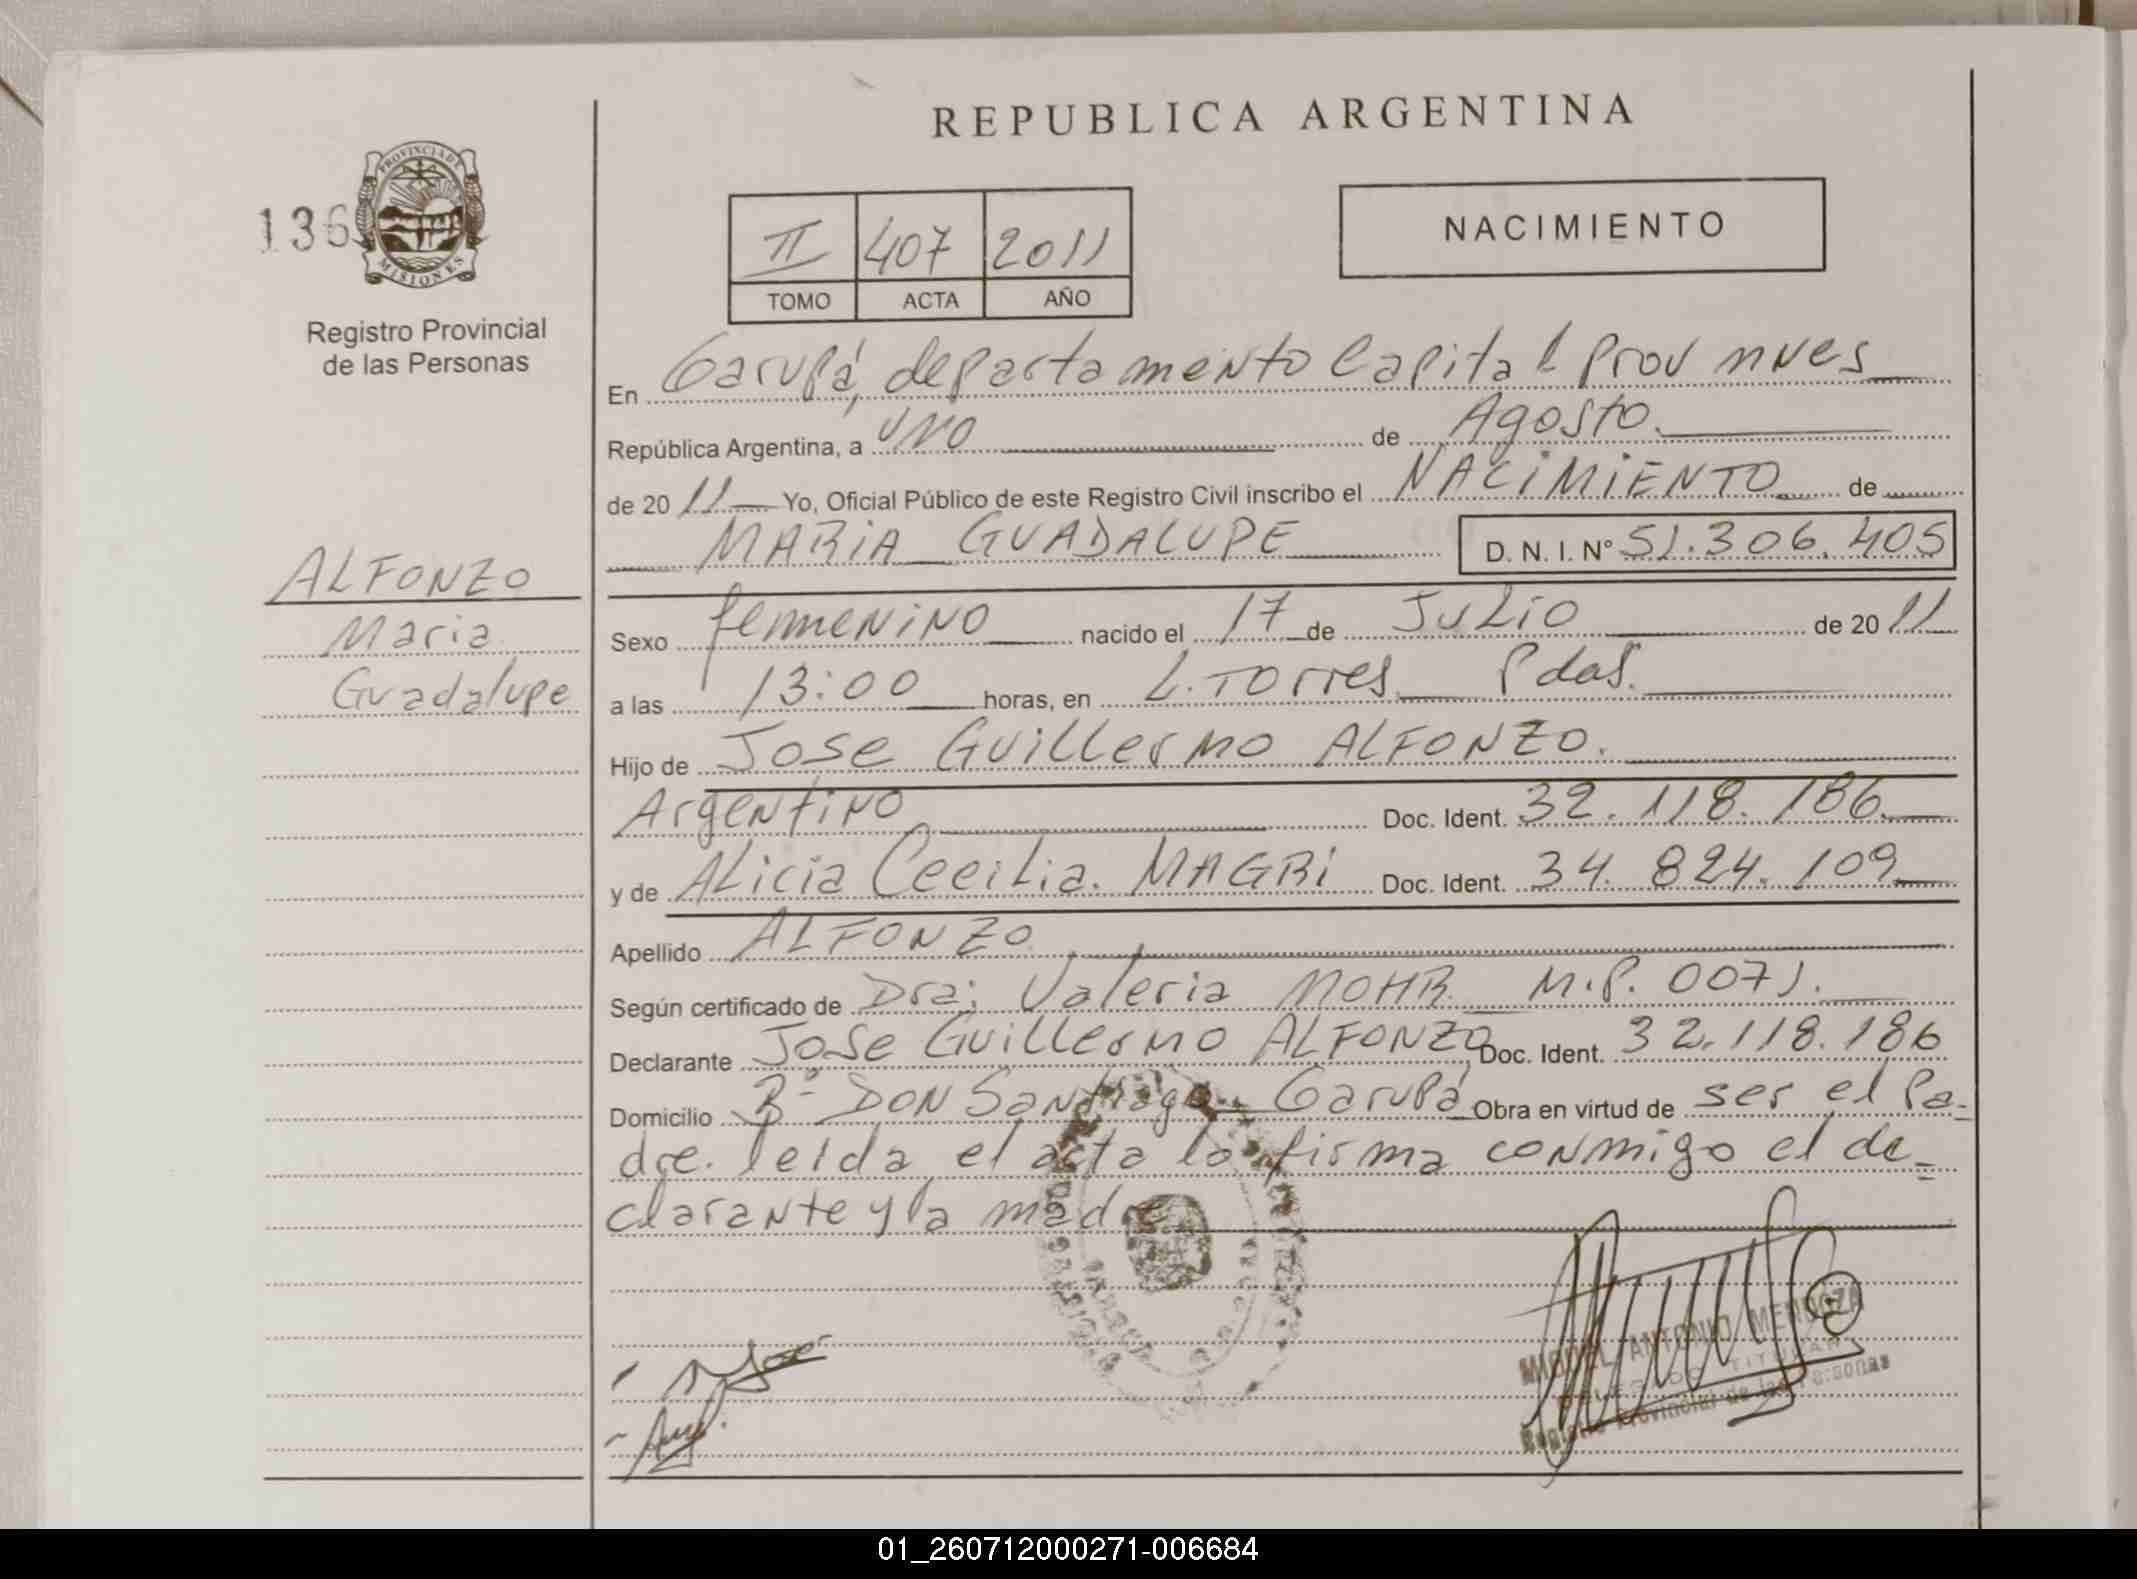 REPUBLICA ARGENTINA
136
PROVINCIA DE
MISIONES
Registro Provincial
de las Personas
II 407 2011
TOMO ACTA AÑO
NACIMIENTO
En Garupá, departamento Capital Prov mnes
República Argentina, a uno de Agosto.
de 20 11 Yo, Oficial Público de este Registro Civil inscribo el NACIMIENTO de
MARIA GUADALUPE D. N. I. N° 51.306.405
ALFONZO
Maria
Guadalupe
Sexo femenino nacido el 17 de JULIO de 20 11
a las 13:00 horas, en L. Torres Pdas.
Hijo de Jose Guillermo ALFONZO.
Argentino Doc. Ident. 32.118.186
y de Alicia Cecilia. MAGRI Doc. Ident. 34.824.109
Apellido ALFONZO
Según certificado de Dra: Valeria MOHR M.P. 0071.
Declarante Jose Guillermo ALFONZO Doc. Ident. 32.118.186
Domicilio Bº DON Santiago Garupá Obra en virtud de ser el Pa-
dre. leida el acta la firma conmigo el de-
clarante y la madre
MIGUEL ANTONIO MENDOZA
DELEGADO TITULAR
Registro Provincial de las Personas
01_260712000271-006684